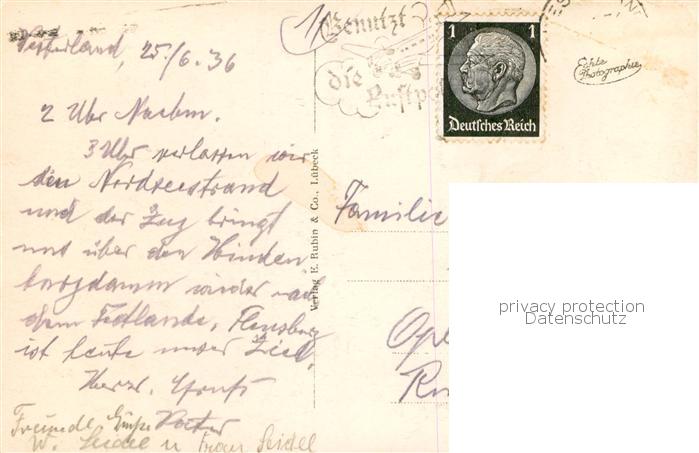 Westerland, 25./6. 36
2 Uhr Nachm.
3 Uhr verlassen wir
den Nordseestrand
und der Zug bringt
uns über den Hinden
burgdamm wieder nach
dem Festlande, Flensburg
ist heute unser Ziel.
Herzl. Gruß
Vater
Freundl. Grüße
W. Seidel u Franz Seidel
Verlag E. Rubin & Co., Lübeck
Benutzt
die
Luftpost
1 1
Deutsches Reich
Echte
Photographie
Familie
privacy protection
Datenschutz